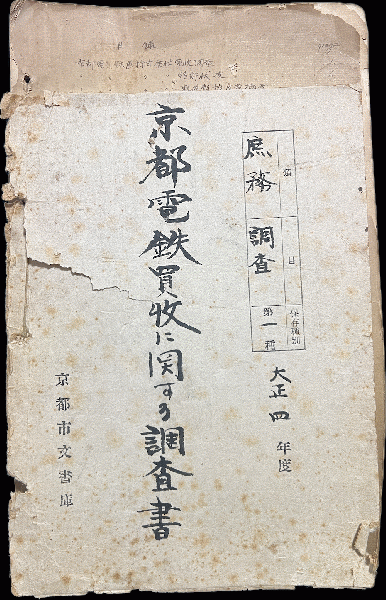 庶務
調査
類
目
保存種別
第一種
大正四年度
京都電鉄買収に関する調査書
京都市文書庫